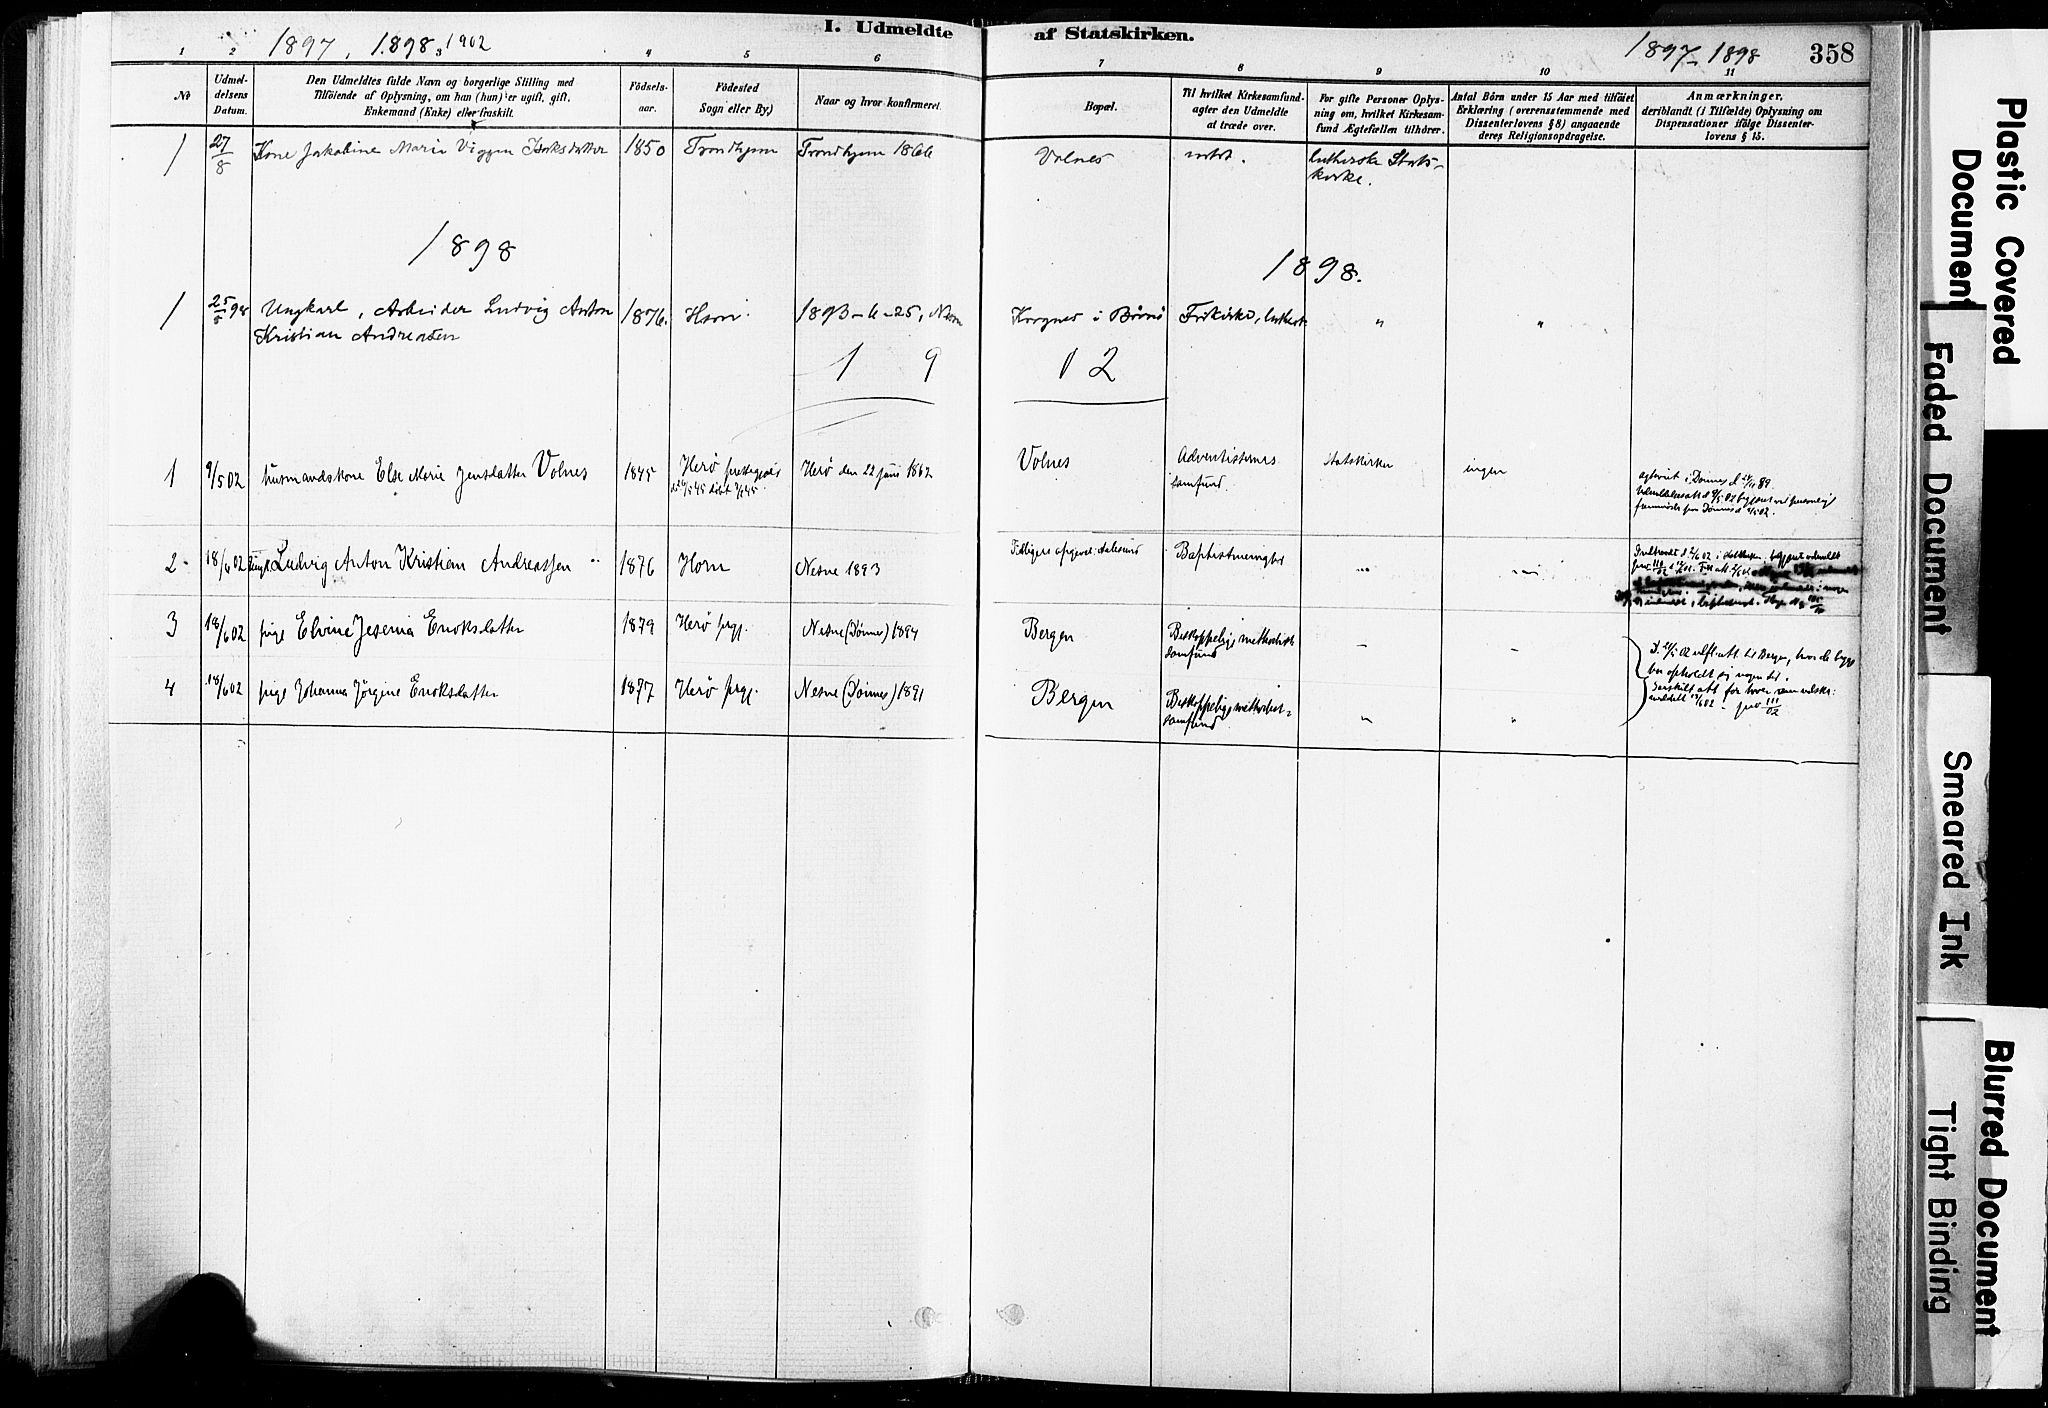 I. Udmeldte af Statskirken.
1897, 1898, 1902
1897-1898
358
1 2 3 4 5 6 7 8 9 10 11
No
Udmel-
delsens
Datum.
Den Udmeldtes fulde Navn og borgerlige Stilling med
Tilföiende af Oplysning, om han (hun) er ugift, gift,
Enkemand (Enke) eller fraskilt.
Födsels-
aar.
Födested
Sogn eller By.)
Naar og hvor konfirmeret.
Bopæl.
Til hvilket Kirkesamfund-
agter den Udmeldte
at træde over.
For gifte Personer Oplys-
ning om, hvilket Kirkesam-
fund Ægtefællen tilhörer.
Antal Börn under 15 Aar med tilföiet
Erklæring (overensstemmende med
Dissenterlovens § 8) angaaende
deres Religionsopdragelse.
Anmærkninger,
deriblandt (i Tilfælde) Oplysning om
Dispensationer ifölge Dissenter-
lovens § 15.
1 27/8 Kone Jakobine Marie Viggen 1850 Trondhjem Trondhjem 1866 Volnes intet. lutherske Stats-
kirke.
1898
1898.
1 25/8 98 Ungkarl, Arbeider Ludvig Anton 1876. Horn 1893-6-25, Nesne i Frikirke, luthersk " "
Kristian Andreasen
1 9 12
1 9/5 02 husmandskone Else Marie Jensdatter Volnes 1845 Herø præstegjeld Herø den 22 juni 1862 Volnes Adventisternes Statskirken ingen
samfund.
2 18/6 02 Ludvig Anton Kristian Andreassen 1876 Horn Nesne 1893 Baptistmenighed
3 18/6 02 pige Elvine Jesenia Enoksdatter 1879 Herø prgj. Nesne (Dønnes) 1894 Bergen Biskoppelig methodist
samfund - -
4 18/6 02 pige Johanna Jørgine Enoksdatter 1877 Herø prgj. Nesne (Dønnes) 1891 Bergen Biskoppelig methodist-
samfund " "
Plastic Covered
Document
Faded Document
Smeared Ink
Blurred Document
Tight Binding